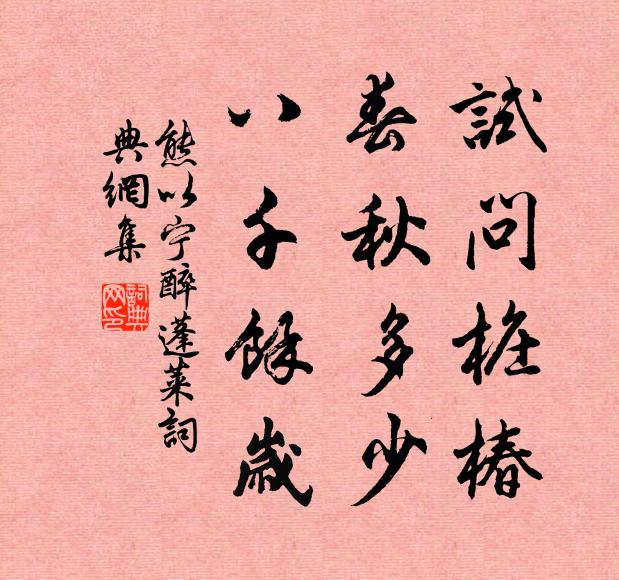 試問桩椿
春秋多少
八千餘歲
熊以宁醉蓬萊詞
典網集
詞典网印